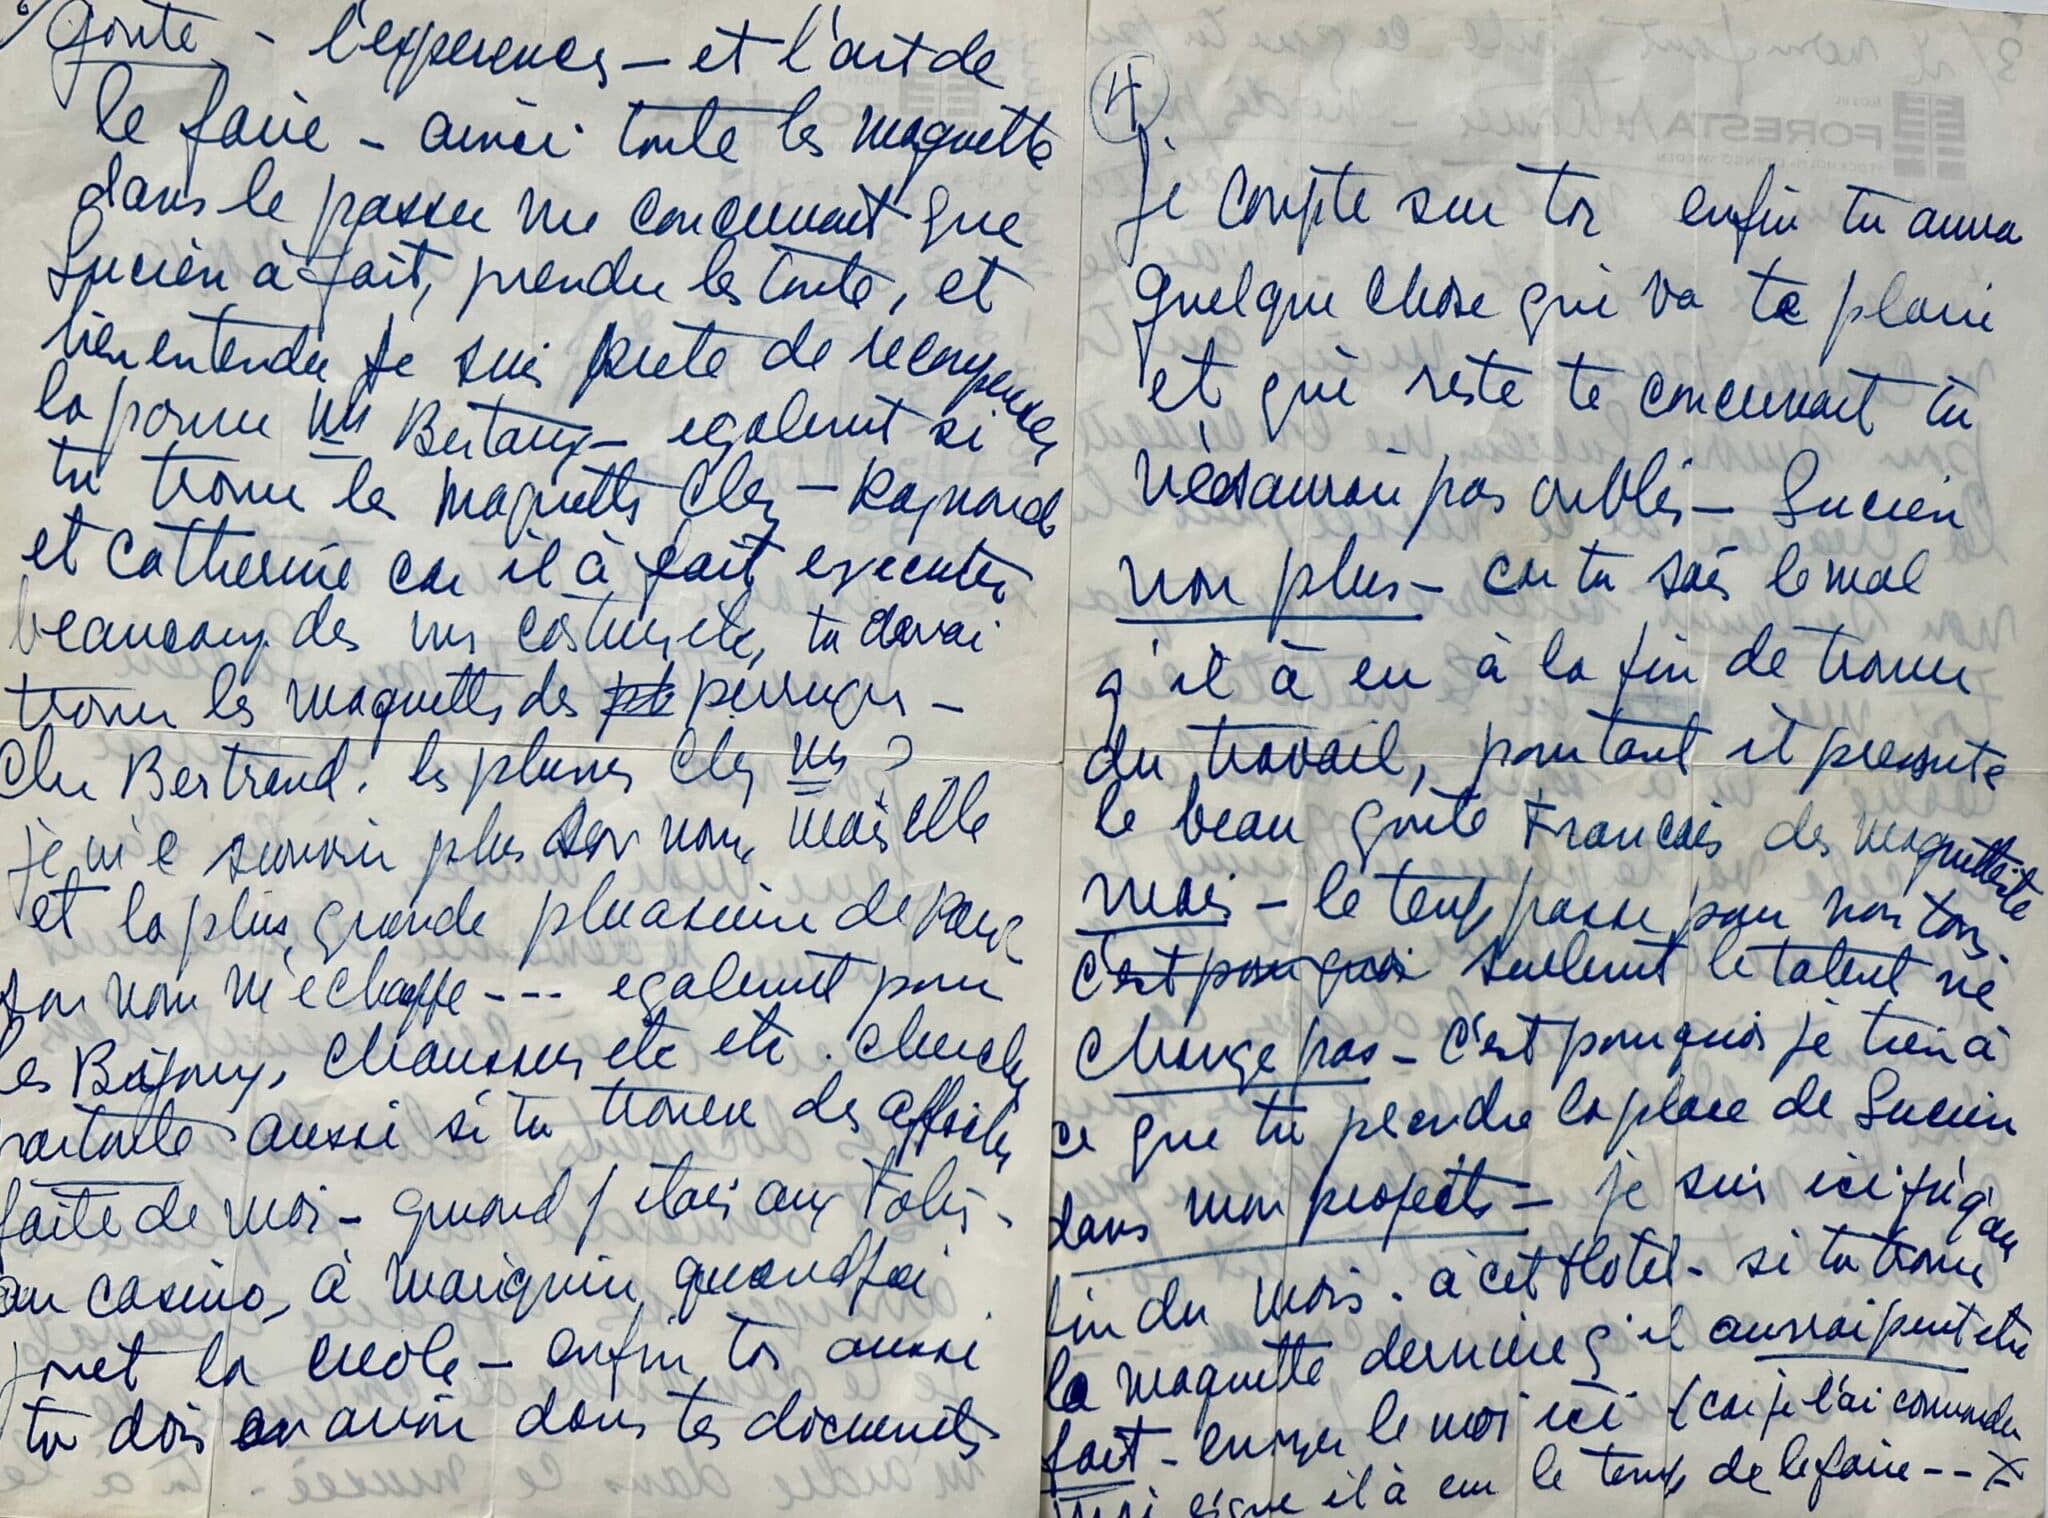 goute - l'experences - et l'art de
le faire - ainsi toute les maquette
dans le passer me concernant que
Lucien à fait, prendre les toute, et
bien entendu je suis prete de recompenser
la pauvre Bertaux - egalement si
tu trouve les maquetts chez - Raymonde
et Catherine car il à fait executer
beaucoup des mes costumes etc, tu devrai
trouver les maquetts des perruques -
Chez Bertrend. les plumes chez
je m'e souvien plus son nom, mais elle
et la plus grande plumassiere de Paris
son nom m'echappe --- egalement pour
les Bijoux, chaussures etc etc. cherche
partoute aussi si tu trouve des affiches
faite de moi - quand j'etais aux Folies -
au casino, à marigniy, quand j'ai
jouet la creole - enfin toi aussi
tu dois en avoir dans tes documents
4
Je compte sur toi enfin tu aura
quelque chose qui va te plaire
et qui reste te concernant tu
ne saurai pas oublié - Lucien
non plus - car tu sais le mal
q'il à eu à la fin de trouver
du travail, pourtant il presente
le beau goute Francais des maquettiste
mais - le temps passe pour nou tous
c'est pourquoi seulement le talent né
change pas - c'est pourquoi je tien à
ce que tu prendre la place de Lucien
dans mon projects - je suis ici jusq'au
fin du mois. à cet Hotel - si tu trouve
la maquette derniere q'il aurrai peut etre
fait - envoyer le moi ici (car je l'ai commander
il à eu le temps de le faire --
HOTEL
FORESTA
STOCKHOLM-LIDINGÖ SWEDEN